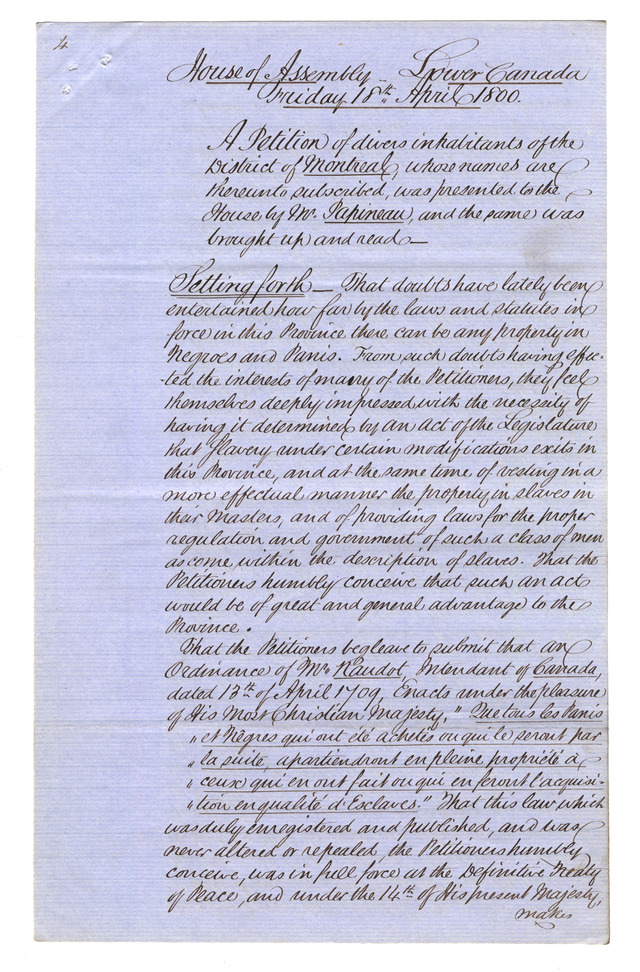 4
House of Assembly - Lower Canada
Friday 18th April 1800.
A Petition of divers inhabitants of the
District of Montreal, whose names are
thereunto subscribed, was presented to the
House by Mr. Papineau, and the same was
brought up and read —
Setting forth — That doubts have lately been
entertained how far by the laws and statutes in
force in this Province there can be any property in
Negroes and Panis. From such doubts having effec-
-ted the interests of many of the Petitioners, they feel
themselves deeply impressed with the necessity of
having it determined by an Act of the Legislature
that Slavery under certain modifications exits in
this Province, and at the same time of vesting in a
more effectual manner the property in slaves in
their Masters, and of providing laws for the proper
regulation and government of such a class of men
as come within the description of slaves. That the
Petitioners humbly conceive that such an act
would be of great and general advantage to the
Province.
That the Petitioners beg leave to submit that an
Ordinance of Mr. Raudot, Intendant of Canada,
dated 13th of April 1709, Enacts under the pleasure
of His Most Christian Majesty, "Que tous les Panis
"et Nègres qui ont été achetés ou qui le seront par
"la suite, apartiendront en pleine propriété à
"ceux qui en ont fait ou qui en feront l'acquisi-
"tion en qualité d'Esclaves." That this law which
was duly enregistered and published, and was
never altered or repealed, the Petitioners humbly
conceive, was in full force at the Definitive Treaty
of Peace, and under the 14th of His present Majesty,
makes